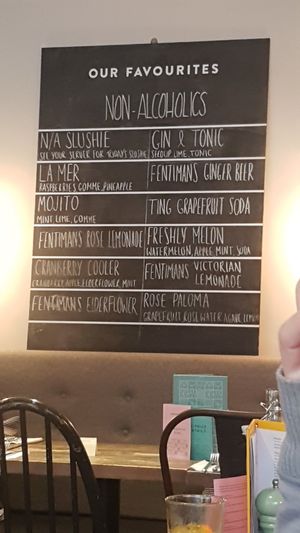 OUR FAVOURITES
NON-ALCOHOLICS
N/A SLUSHIE
SEE YOUR SERVER FOR TODAY'S SLUSHIE
LA MER
RASPBERRIES, GOMME, PINEAPPLE
MOJITO
MINT, LIME, GOMME
FENTIMAN'S ROSE LEMONADE
CRANBERRY COOLER
CRANBERRY, APPLE, ELDERFLOWER, MINT
FENTIMAN'S ELDERFLOWER
GIN & TONIC
SEEDLIP, LIME, TONIC
FENTIMANS GINGER BEER
TING GRAPEFRUIT SODA
FRESHLY MELON
WATERMELON, APPLE, MINT, SODA
FENTIMANS VICTORIAN
LEMONADE
ROSE PALOMA
GRAPEFRUIT, ROSEWATER, AGAVE, LEMON